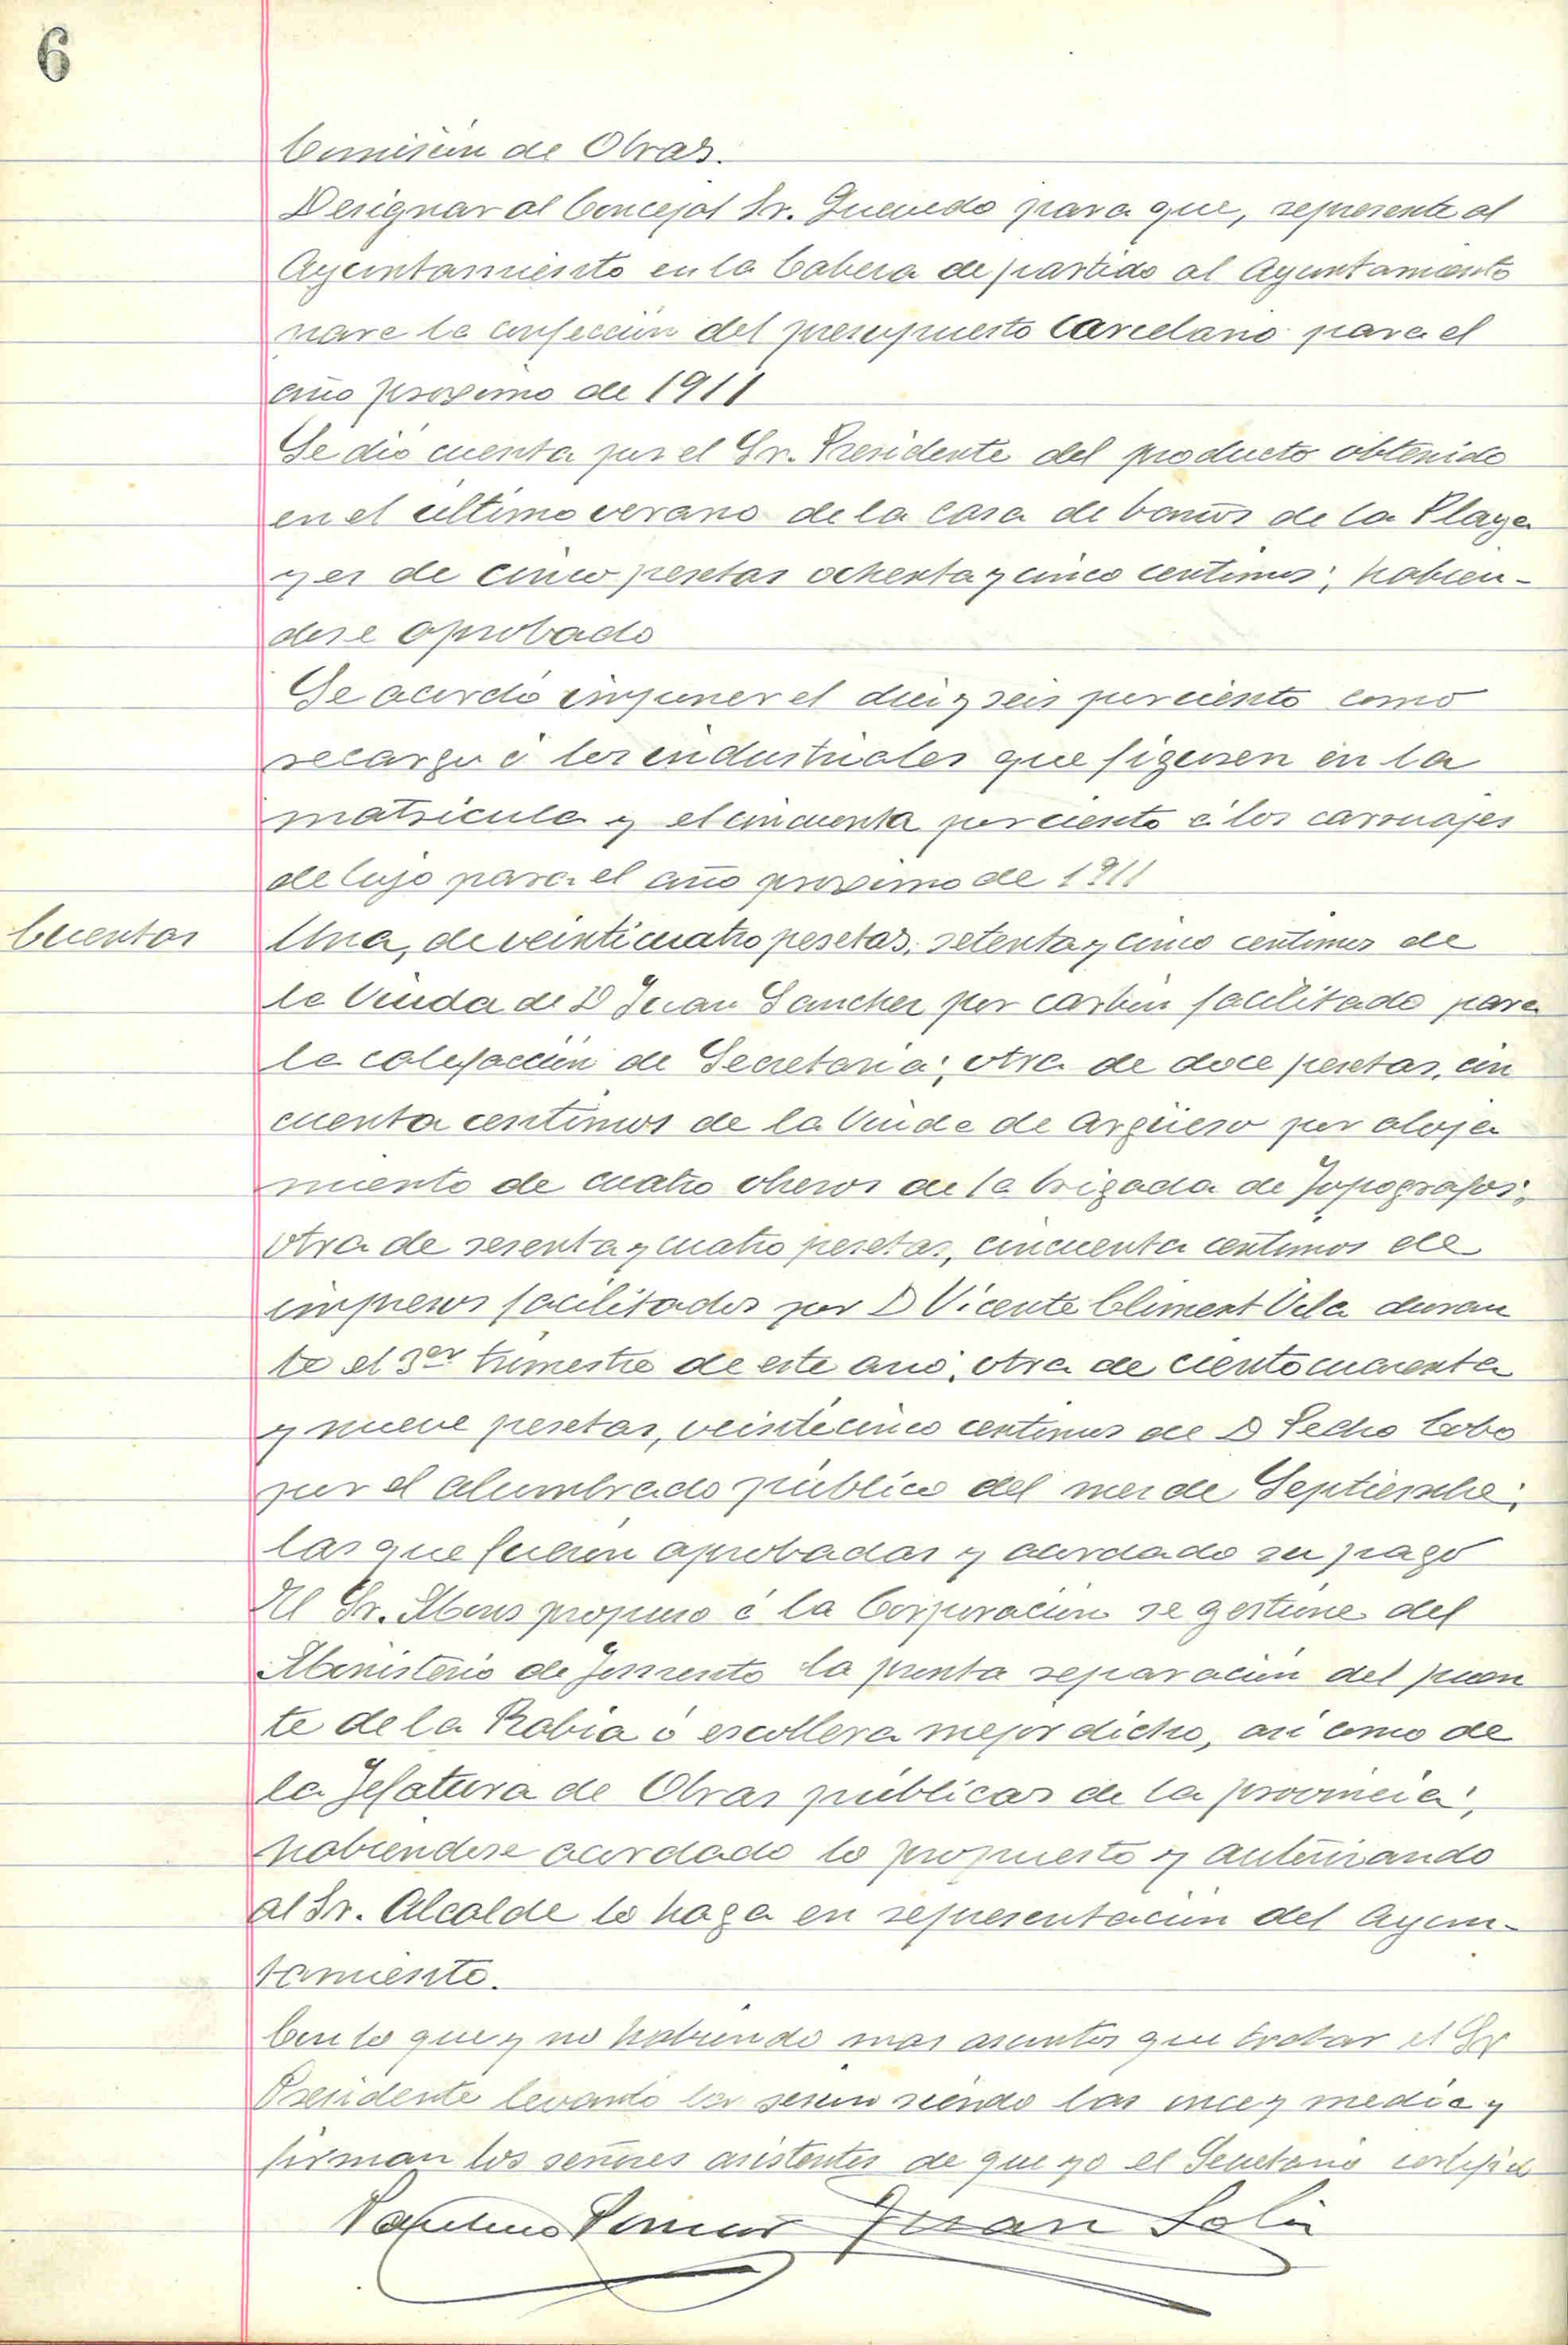 6
Comisión de Obras.
Designar al Concejal Sr. Quevedo para que, represente al
Ayuntamiento en la Cabeza de partido al Ayuntamiento
para la confección del presupuesto Carcelario para el
año proximo de 1911
Se dió cuenta por el Sr. Presidente del producto obtenido
en el ultimo verano de la casa de baños de la Playa
y es de cinco pesetas ochenta y cinco centimos; habien-
dose aprobado
Se acordó imponer el diez y seis por ciento como
recargo á los industriales que figuren en la
matricula y el cincuenta por ciento á los carruajes
de lujo para el año proximo de 1911
Cuentas
Una, de veinticuatro pesetas, setenta y cinco centimos de
la Viuda de D Juan Sanchez por carbón facilitado para
la calefacción de Secretaria; otra de doce pesetas, cin
cuenta centimos de la Viuda de Argüeso por aloja
miento de cuatro obreros de la brigada de Topografos;
otra de sesenta y cuatro pesetas, cincuenta centimos de
impresos facilitados por D Vicente Climent Vila duran
te el 3er trimestre de este año; otra de ciento cuarenta
y nueve pesetas, veinticinco centimos de D Pedro Cobo
por el alumbrado público del mes de Septiembre;
las que fueron aprobadas y acordado su pago
El Sr. propuso á la Corporación se gestione del
Ministerio de Fomento la pronta reparación del puen
te de la Rabia ó escollera mejor dicho, asi como de
la Jefatura de Obras públicas de la provincia;
habiendose acordado lo propuesto y autorizando
al Sr. Alcalde lo haga en representación del Ayun-
tamiento.
Con lo que y no habiendo mas asuntos que tratar el Sr
Presidente levantó la sesion siendo las once y media y
firman los señores asistentes de que yo el Secretario certifico
Juan Solis